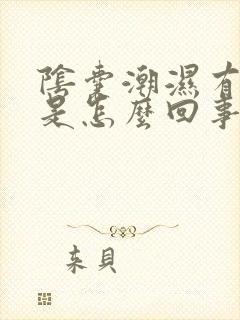 陰囊潮濕有
是怎麼回事
来貝